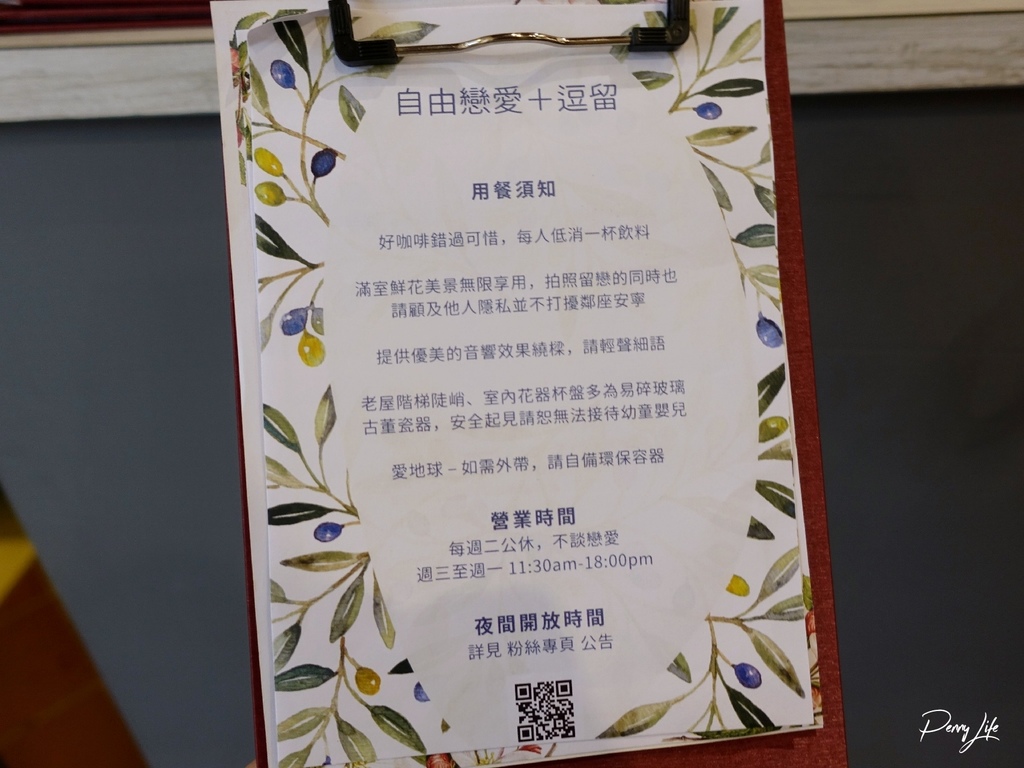 自由戀愛＋逗留
用餐須知
好咖啡錯過可惜，每人低消一杯飲料
滿室鮮花美景無限享用，拍照留戀的同時也
請顧及他人隱私並不打擾鄰座安寧
提供優美的音響效果繞樑，請輕聲細語
老屋階梯陡峭、室內花器杯盤多為易碎玻璃
古董瓷器，安全起見請恕無法接待幼童嬰兒
愛地球 – 如需外帶，請自備環保容器
營業時間
每週二公休，不談戀愛
週三至週一 11:30am-18:00pm
夜間開放時間
詳見 粉絲專頁 公告
Penny Life